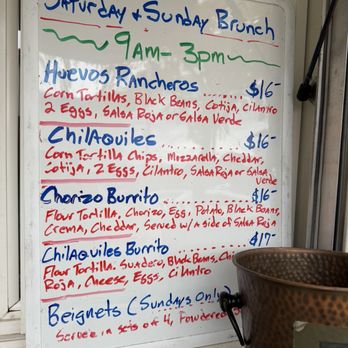 Saturday + Sunday Brunch
9am - 3pm
Huevos Rancheros ..... $16-
Corn Tortillas, Black Beans, Cotija, Cilantro
2 Eggs, Salsa Roja or Salsa Verde
Chilaquiles ........ $16-
Corn Tortilla Chips, Mozzarella, Cheddar,
Cotija, 2 Eggs, Cilantro, Salsa Roja or Salsa
Verde
Chorizo Burrito ........ $16-
Flour Tortilla, Chorizo, Egg, Potato, Black Beans,
Crema, Cheddar, Served w/ a side of Salsa Roja
Chilaquiles Burrito ...... $17-
Flour Tortilla, Suadero, Black Beans,
Roja, Cheese, Eggs, Cilantro
Beignets (Sundays Only)
in sets of 4,